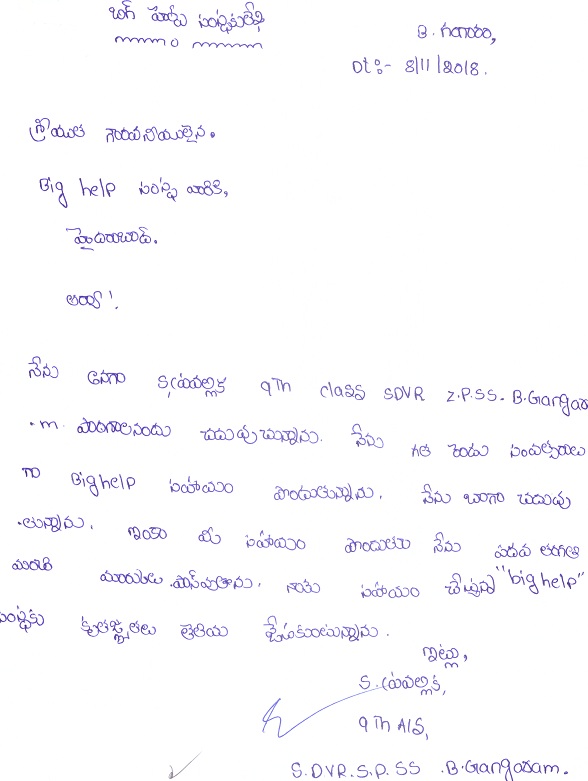 బిగ్ హెల్ప్ సంస్థకులేఖ
B. గంగారం,
Dt:- 8/11/2018.
శ్రీయుత గౌరవనీయులైన.
Big help సంస్థ వారికి,
హైదరాబాద్.
అయ్యా!
నేను అనగా S. ప్రవల్లిక 9Th class SDVR Z.P.SS. B.Gangar
.m. పాఠశాలనందు చదువుచున్నాను. నేను గత రెండు సంవత్సరాలు
గా Big help సహాయం పొందుతున్నాను. నేను బాగా చదువు
తున్నాను. ఇంకా మీ సహాయం పొందుతూ నేను పదవ తరగతి
మంచి మార్కులు పాస్‌వుతాను. నాకు సహాయం చేస్తున్న "big help"
సంస్థకు కృతజ్ఞతలు తెలియ జేసుకుంటున్నాను.
ఇట్లు,
S. ప్రవల్లిక,
9Th A/S,
S.DVR.S.P.SS .B.Gangaram.